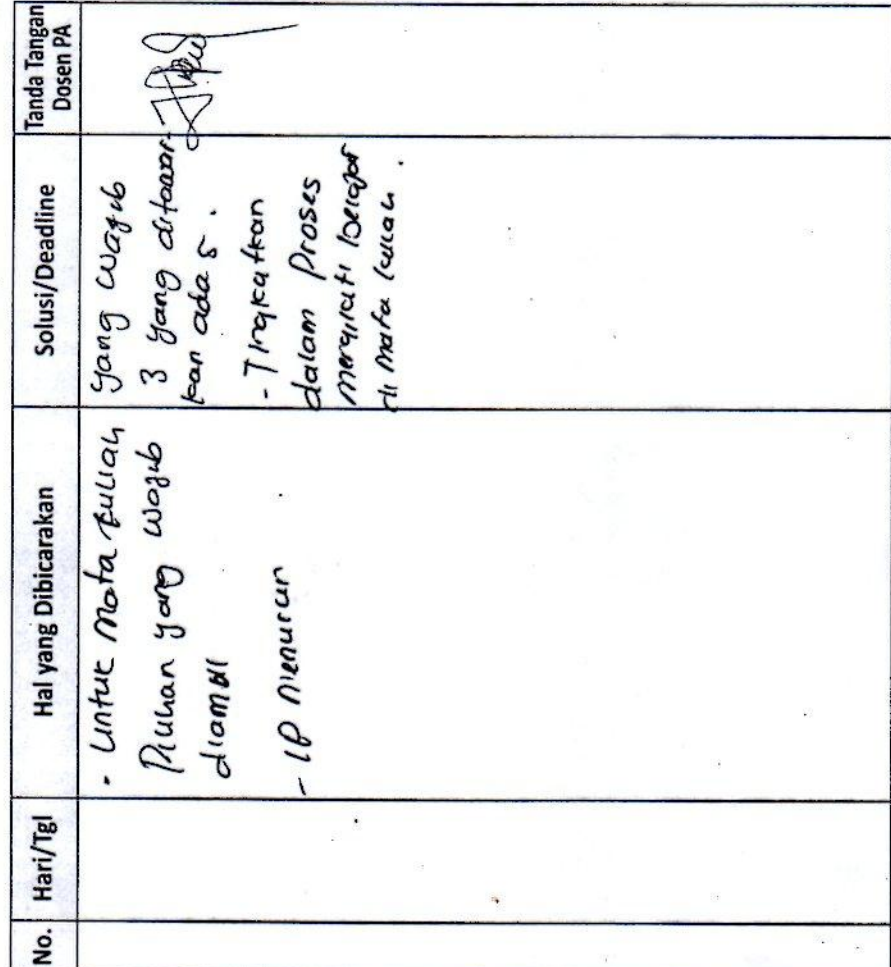 No.
Hari/Tgl
Hal yang Dibicarakan
Solusi/Deadline
Tanda Tangan
Dosen PA
- Untuk Mata kuliah
Pilihan yang wajib
diambil
- IP Menurun
yang wajib
3 yang ditawar-
kan ada 5.
- Tingkatkan
dalam Proses
mengikuti belajar
di Mata kuliah.